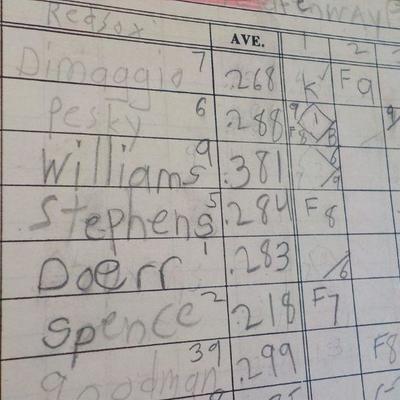 Redsox Fenway
AVE. 1 2
Dimaggio 7 .268 K F9
Pesky 6 .288 9 1 F8 3 9
Williams 9 .381 6 9
Stephens 5 .284 F8
Doerr 1 .283 6
Spence 2 .218 F7
goodman 39 .299 F8